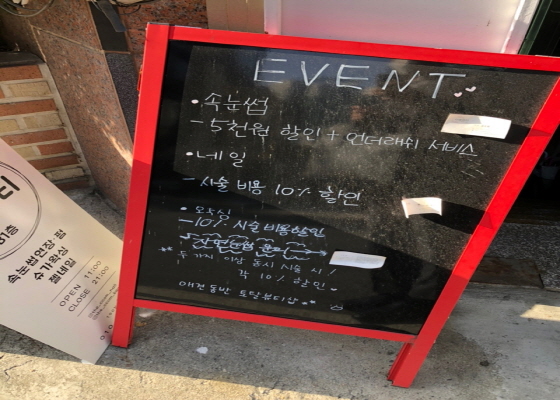 EVENT
• 속눈썹
- 5천원 할인 + 언더래쉬 서비스
• 네일
- 시술 비용 10% 할인
• 왁싱
- 10% 시술 비용할인
두 가지 이상 동시 시술 시
각 10% 할인
애견동반 토탈뷰티샵
티
속눈썹연장 펌
슈가왁싱
젤네일
OPEN 11:00
CLOSE 21:00